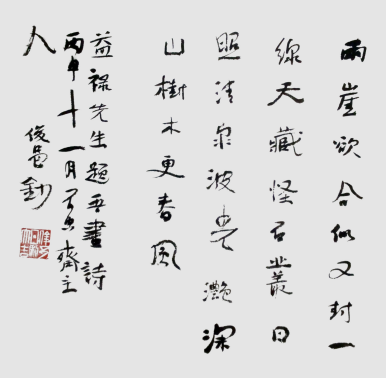 兩崖欲合似又封一
線天藏怪石叢日
照清泉波光灩深
山樹木更春風
益祿先生題吾畫詩
丙申十一月齋主
人